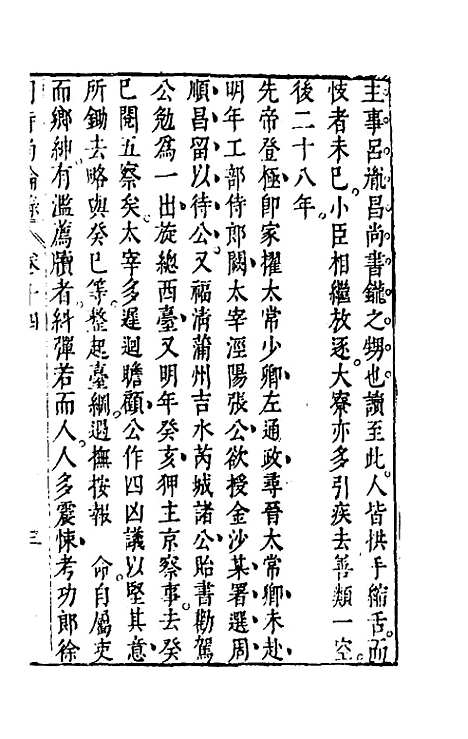 主事呂胤昌尚書鑨之甥也讀至此人皆拱手縮舌而
忮者未已小臣相繼放逐大寮亦多引疾去善類一空
後二十八年
先帝登極即家擢太常少卿左通政尋晉太常卿未赴
明年工部侍郎闕太宰涇陽張公欲授金沙某署選周
順昌留以待公又福清蒲州吉水芮城諸公貽書勸駕
公勉爲一出旋總西臺又明年癸亥狎主京察事去癸
巳閱五察矣太宰多遲迴瞻顧公作四凶議以堅其意
所鋤去略與癸巳等整起臺綱遇撫按報 命自屬吏
而鄉紳有濫薦牘者糾彈若而人人多震悚考功郎徐
卷十四 三